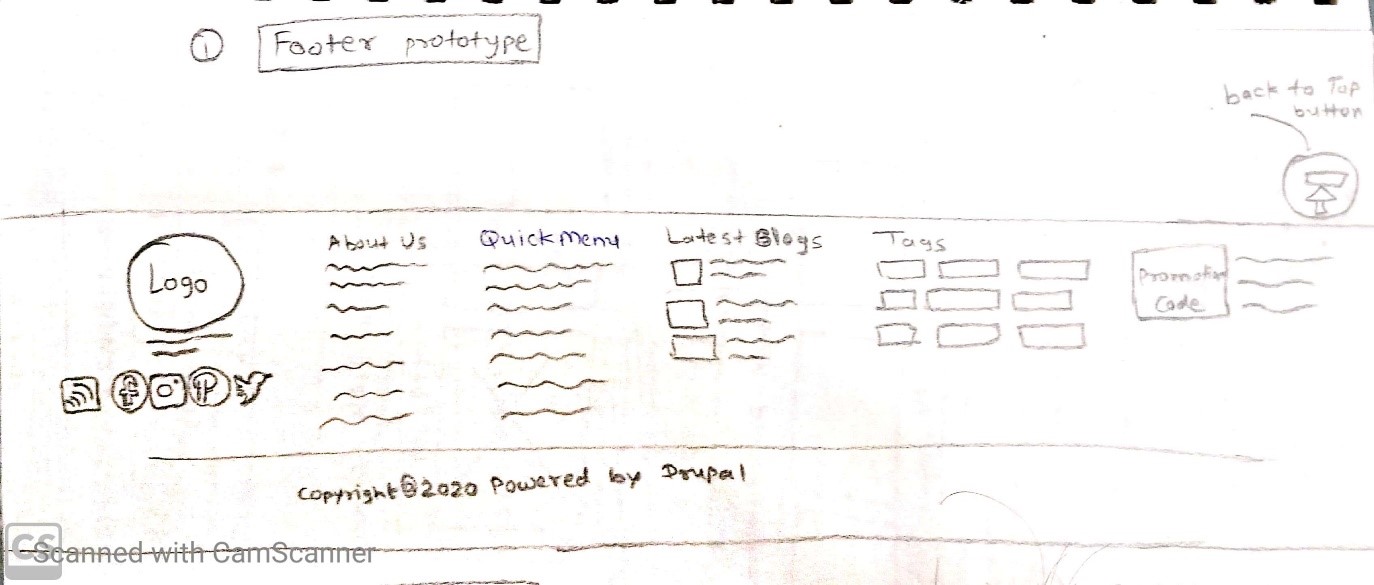 1 Footer prototype
back to Top
button
Logo
About Us
Quick Menu
Latest Blogs
Tags
Promotion
Code
Copyright@2020 Powered by Drupal
CS Scanned with CamScanner